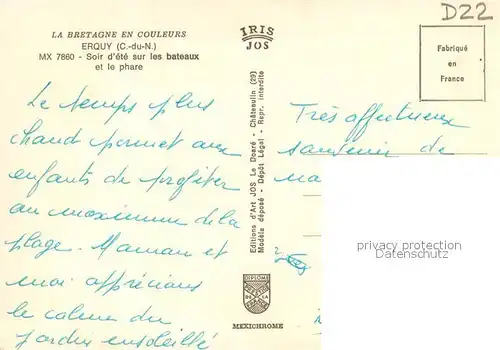 D22
LA BRETAGNE EN COULEURS
ERQUY (C.-du-N.)
MX 7860 - Soir d'été sur les bateaux
et le phare
IRIS
JOS
Fabriqué
en
France
Le temps plus
chaud permet aux
enfants de profiter
au maximum de la
plage. Maman et
moi apprécions
le calme du
jardin ensoleillé
Editions d'Art JOS Le Doaré - Châteaulin (29)
Modèle déposé - Dépôt Légal - Repr. interdite
MEXICHROME
Très affectueux
souvenir de
privacy protection
Datenschutz